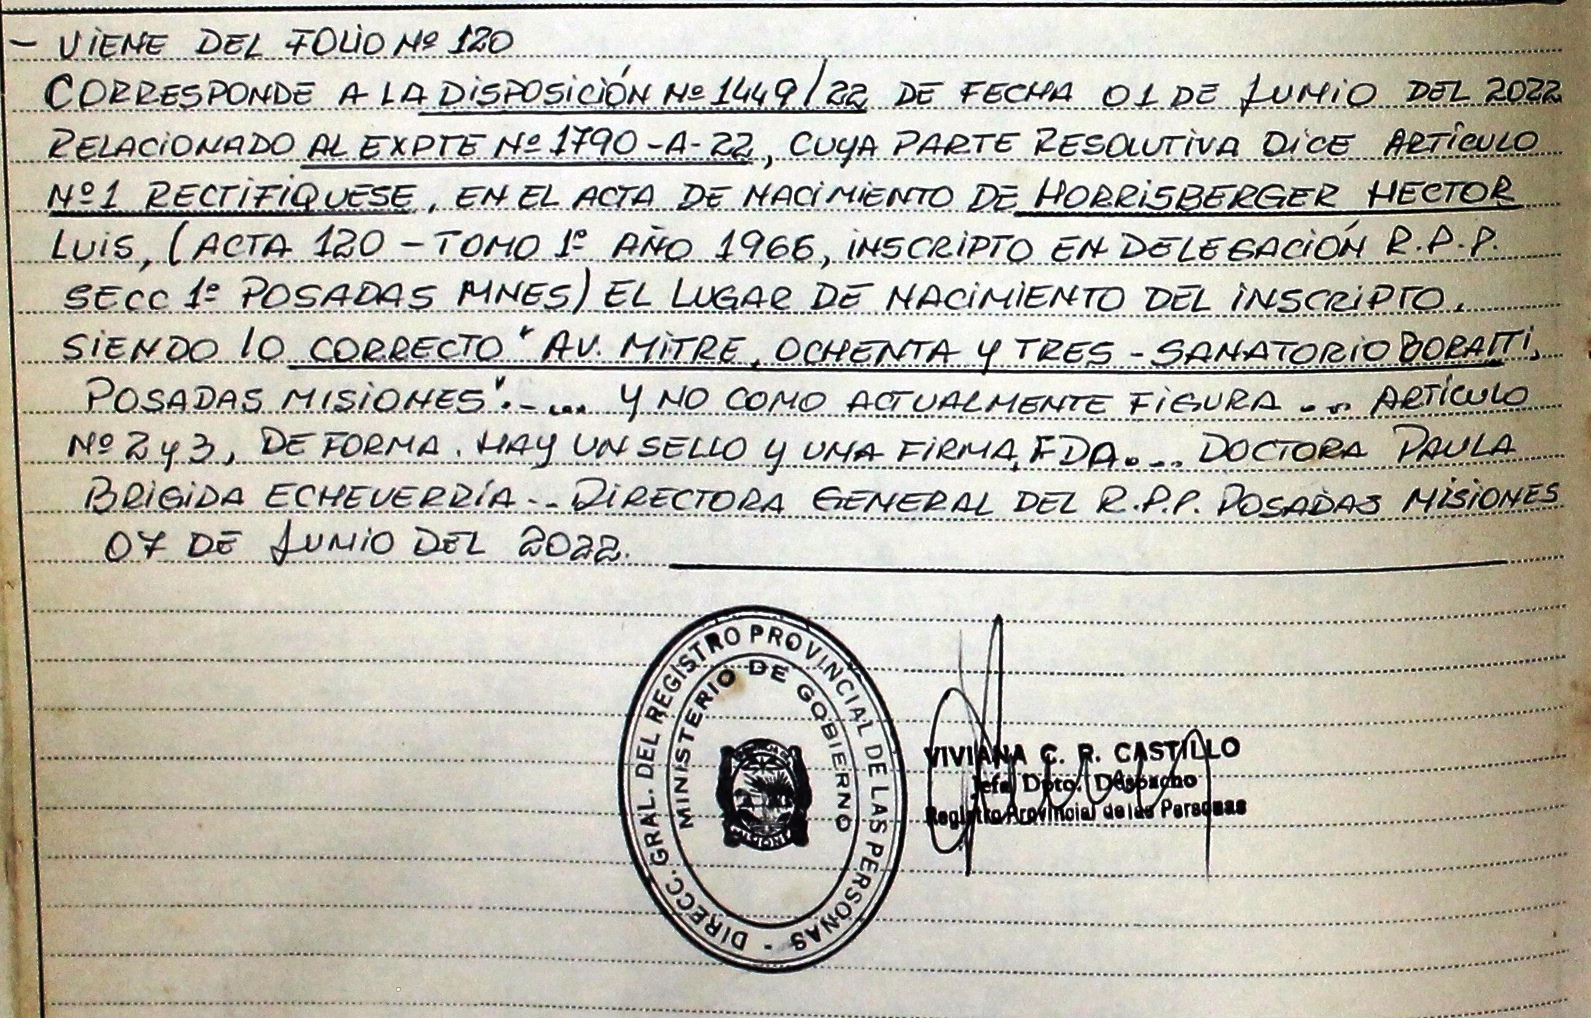 - VIENE DEL FOLIO Nº 120
CORRESPONDE A LA DISPOSICIÓN Nº 1449/22 DE FECHA 01 DE JUNIO DEL 2022
RELACIONADO AL EXPTE Nº 1790-A-22, CUYA PARTE RESOLUTIVA DICE ARTÍCULO
Nº 1 RECTIFIQUESE, EN EL ACTA DE NACIMIENTO DE HORRISBERGER HECTOR
LUIS, (ACTA 120 - TOMO 1º AÑO 1966, INSCRIPTO EN DELEGACIÓN R.P.P.
SECC 1º POSADAS MNES) EL LUGAR DE NACIMIENTO DEL INSCRIPTO.
SIENDO LO CORRECTO " AV. MITRE, OCHENTA Y TRES - SANATORIO BORATTI,
POSADAS MISIONES".-... Y NO COMO ACTUALMENTE FIGURA ... ARTÍCULO
Nº 2 y 3, DE FORMA. HAY UN SELLO Y UNA FIRMA, FDA... DOCTORA PAULA
BRIGIDA ECHEVERRÍA.. DIRECTORA GENERAL DEL R.P.P. POSADAS MISIONES
07 DE JUNIO DEL 2022.
DIRECC. GRAL. DEL REGISTRO PROVINCIAL DE LAS PERSONAS -
MINISTERIO DE GOBIERNO
VIVIANA C. R. CASTILLO
Jefa Dpto. Despacho
Registro Provincial de las Personas